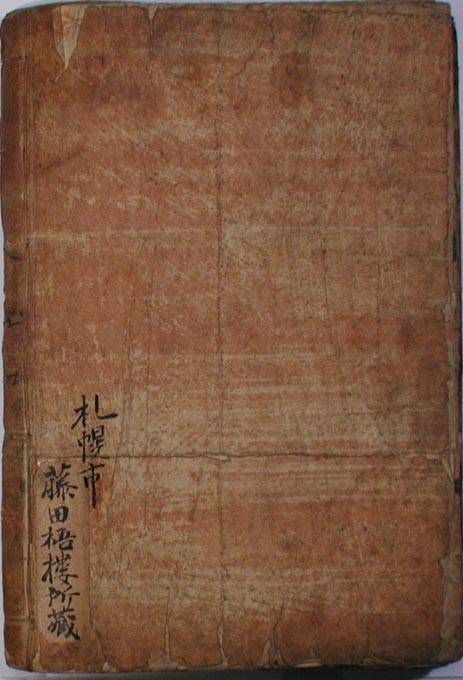 札幌市
藤田梧楼所蔵